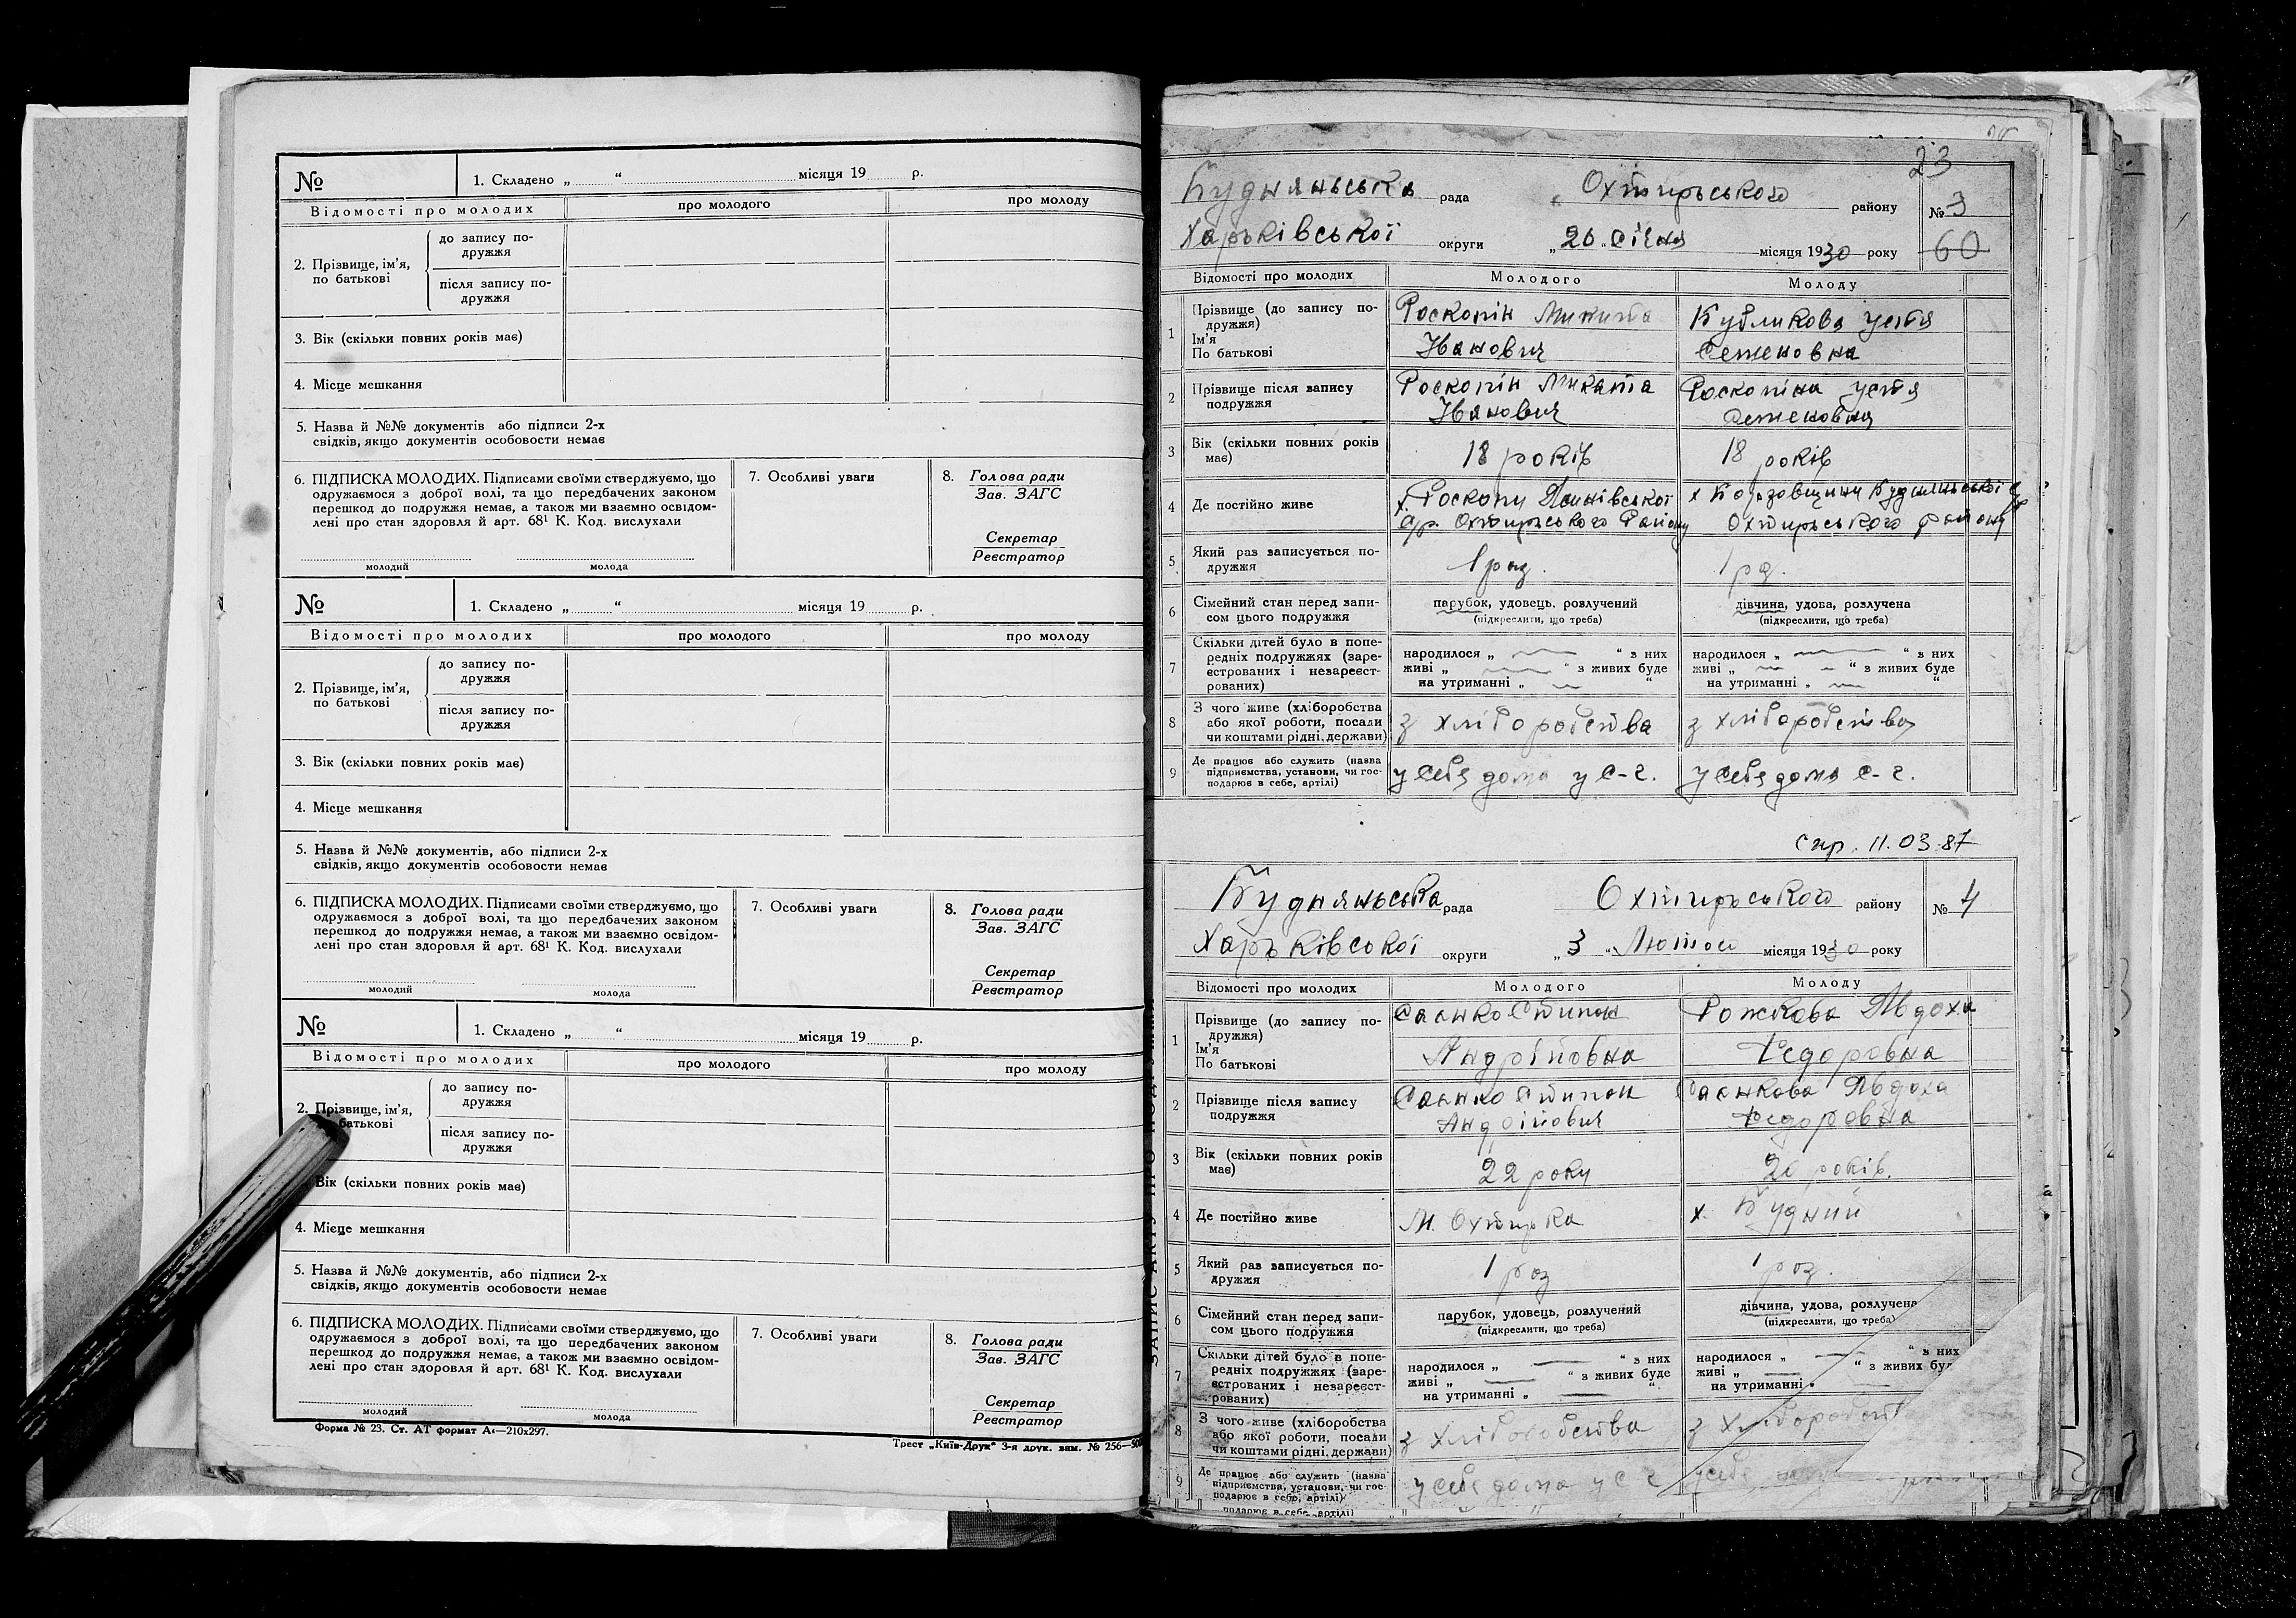 №
1. Складено „ “ місяця 19 р.
Відомості про молодих
про молодого
про молоду
2. Прізвище, ім’я,
по батькові
до запису по-
дружжя
після запису по-
дружжя
3. Вік (скільки повних років має)
4. Місце мешкання
5. Назва й №№ документів або підписи 2-х
свідків, якщо документів особовости немає
6. ПІДПИСКА МОЛОДИХ. Підписами своїми стверджуємо, що
одружаємося з доброї волі, та що передбачених законом
перешкод до подружжя немає, а також ми взаємно освідом-
лені про стан здоровля й арт. 68¹ К. Код. вислухали
молодий
молода
7. Особливі уваги
8. Голова ради
Зав. ЗАГС
Секретар
Реєстратор
№
1. Складено „ “ місяця 19 р.
Відомості про молодих
про молодого
про молоду
2. Прізвище, ім’я,
по батькові
до запису по-
дружжя
після запису по-
дружжя
3. Вік (скільки повних років має)
4. Місце мешкання
5. Назва й №№ документів, або підписи 2-х
свідків, якщо документів особовости немає
6. ПІДПИСКА МОЛОДИХ. Підписами своїми стверджуємо, що
одружаємося з доброї волі, та що передбачених законом
перешкод до подружжя немає, а також ми взаємно освідом-
лені про стан здоровля й арт. 68¹ К. Код. вислухали
молодий
молода
7. Особливі уваги
8. Голова ради
Зав. ЗАГС
Секретар
Реєстратор
№
1. Складено „ “ місяця 19 р.
Відомості про молодих
про молодого
про молоду
2. Прізвище, ім’я,
батькові
до запису по-
дружжя
після запису по-
дружжя
Вік (скільки повних років має)
4. Місце мешкання
5. Назва й №№ документів, або підписи 2-х
свідків, якщо документів особовости немає
6. ПІДПИСКА МОЛОДИХ. Підписами своїми стверджуємо, що
одружаємося з доброї волі, та що передбачених законом
перешкод до подружжя немає, а також ми взаємно освідом-
лені про стан здоровля й арт. 68¹ К. Код. вислухали
молодий
молода
7. Особливі уваги
8. Голова ради
Зав. ЗАГС
Секретар
Реєстратор
Форма № 23. Ст. АТ формат А4—210х297.
Трест „Київ-Друк“ 3-я друк. зам. № 256—
23
Будняньська рада Охтирського району № 3
Харьківської округи „20„ січня місяця 1930 року 60
Відомості про молодих
Молодого
Молоду
1
Прізвище (до запису по-
дружжя)
Ім’я
По батькові
Роскопін Микита
Іванович
Кубликова Устя
Семеновна
2
Прізвище після запису
подружжя
Роскопін Микита
Іванович
Роскопіна Устя
Семеновна
3
Вік (скільки повних років
має)
18 років
18 років
4
Де постійно живе
х. Роскопи
с/р. Охтирського Району
х
Охтирського району
5
Який раз записується по-
дружжя
1 раз.
1 рз.
6
Сімейний стан перед запи-
сом цього подружжя
парубок, удовець, розлучений
(підкреслити, що треба)
дівчина, удова, розлучена
(підкреслити, що треба)
7
Скільки дітей було в попе-
редніх подружжях (заре-
єстрованих і незареєст-
рованих)
народилося „ “ з них
живі „ “ з живих буде
на утриманні „ “
народилося „ “ з них
живі „ “ з живих буде
на утриманні „ “
8
З чого живе (хліборобства
або якої роботи, посади
чи коштами рідні, держави)
з хліборобства
з хліборобства
9
Де працює або служить (назва
підприємства, установи, чи гос-
подарює в себе, артілі)
у себя дома у с-г.
у себя дома с-г.
спр. 11.03.87
Будняньська рада Охтирського району № 4
Харьківської округи „3 “ Лютого місяця 1930 року
Відомості про молодих
Молодого
Молоду
1
Прізвище (до запису по-
дружжя)
Ім’я
По батькові
Андрійовна
Рожкова Явдоха
Федоровна
2
Прізвище після запису
подружжя
Андрійович
Явдоха
Федоровна
3
Вік (скільки повних років
має)
22 року
20 років.
4
Де постійно живе
м. Охтирка
х. Будний
5
Який раз записується по-
дружжя
1 роз
1 роз.
6
Сімейний стан перед запи-
сом цього подружжя
парубок, удовець, розлучений
(підкреслити, що треба)
дівчина, удова, розлучена
(підкреслити, що треба)
7
Скільки дітей було в попе-
редніх подружжях (заре-
єстрованих і незареєст-
рованих)
народилося „ “ з них
живі „ “ з живих буде
на утриманні „ “
народилося „ “ з них
живі „ “ з живих буд
на утриманні
8
З чого живе (хліборобства
або якої роботи, посади
чи коштами рідні, держави)
з хліборобства
з хліборобст
9
Де працює або служить (назва
підприємства, установи, чи гос-
подарює в себе, артілі)
у себя дома у с г
у себя
подарює в себе, артілі)